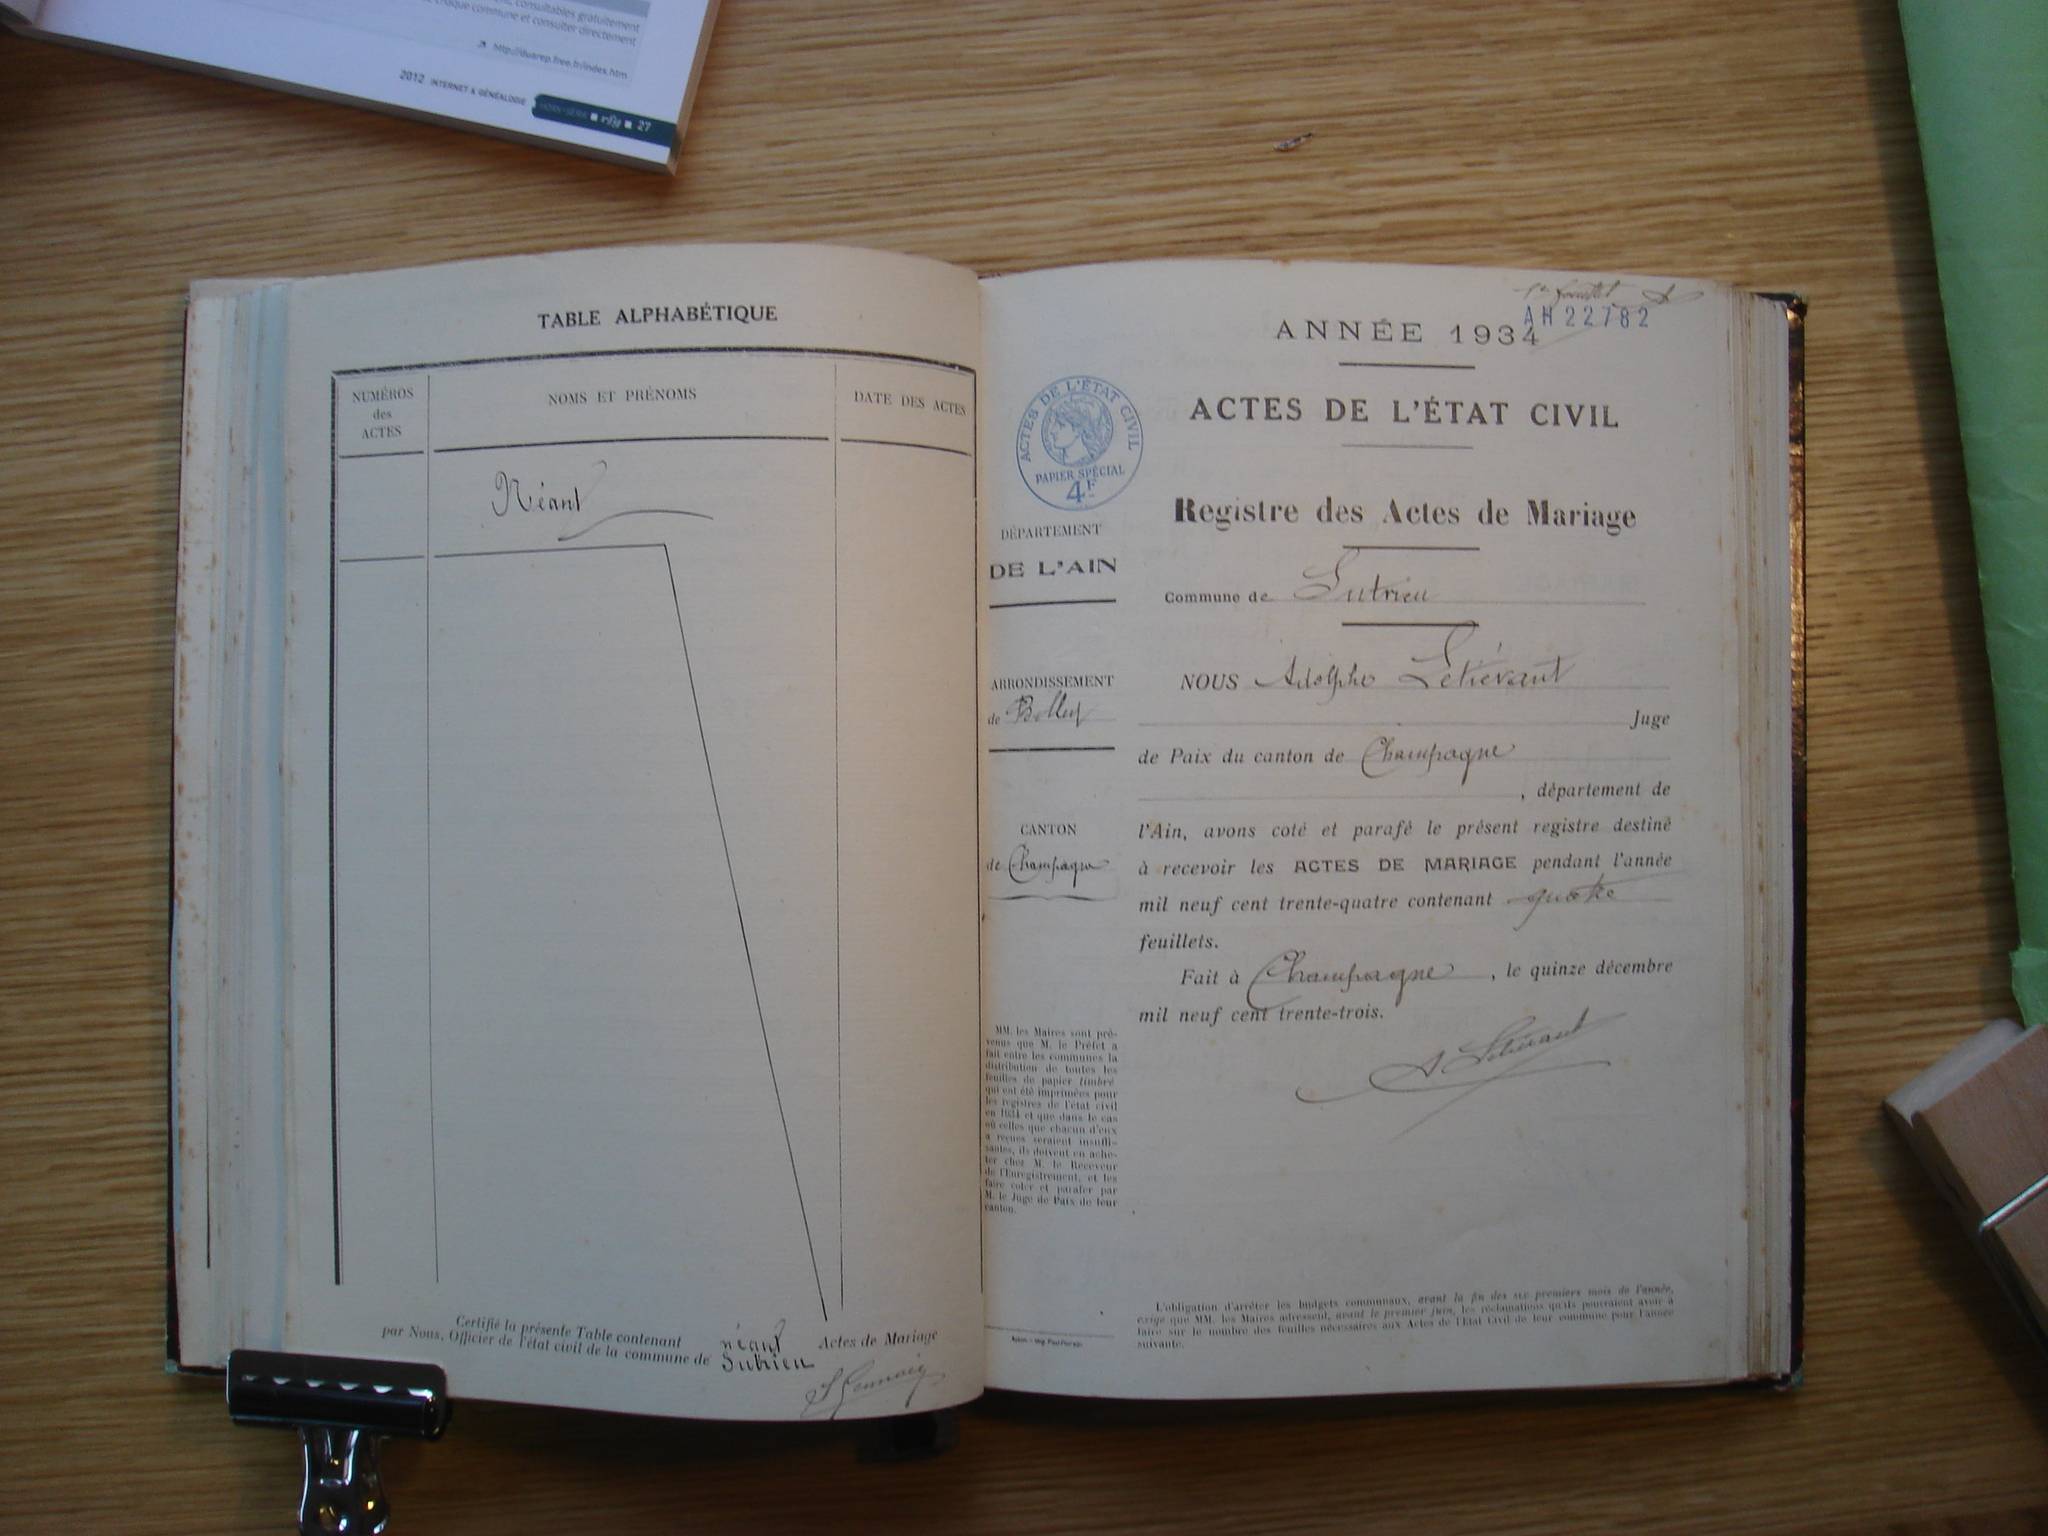 consultables gratuitement
chaque commune et consulter directement
http://duarep.free.fr/index.htm
2012 INTERNET & GÉNÉALOGIE HORS-SÉRIE rfg 27
TABLE ALPHABÉTIQUE
NUMÉROS
des
ACTES
NOMS ET PRÉNOMS
DATE DES ACTES
Néant
Certifié la présente Table contenant néant Actes de Mariage
par Nous, Officier de l'état civil de la commune de Sutrieu
AH 22782
ANNÉE 1934
ACTES DE L'ÉTAT CIVIL
ACTES DE L'ÉTAT CIVIL
PAPIER SPÉCIAL
4F
Registre des Actes de Mariage
DÉPARTEMENT
DE L'AIN
Commune de Sutrieu
ARRONDISSEMENT
de Belley
CANTON
de Champagne
NOUS Adolphe Létiévant
Juge
de Paix du canton de Champagne
, département de
l'Ain, avons coté et parafé le présent registre destiné
à recevoir les ACTES DE MARIAGE pendant l'année
mil neuf cent trente-quatre contenant quatre
feuillets.
Fait à Champagne, le quinze décembre
mil neuf cent trente-trois.
A Létiévant
MM. les Maires sont pré-
venus que M. le Préfet a
fait entre les communes la
distribution de toutes les
feuilles de papier timbré
qui ont été imprimées pour
les registres de l'état civil
en 1934 et que dans le cas
où celles que chacun d'eux
a reçues seraient insuffi-
santes, ils doivent en ache-
ter chez M. le Receveur
de l'Enregistrement, et les
faire coter et parafer par
M. le Juge de Paix de leur
canton.
L'obligation d'arrêter les budgets communaux, avant la fin des six premiers mois de l'année,
exige que MM. les Maires adressent, avant le premier juin, les réclamations qu'ils pourraient avoir à
faire sur le nombre des feuilles nécessaires aux Actes de l'État Civil de leur commune pour l'année
suivante.